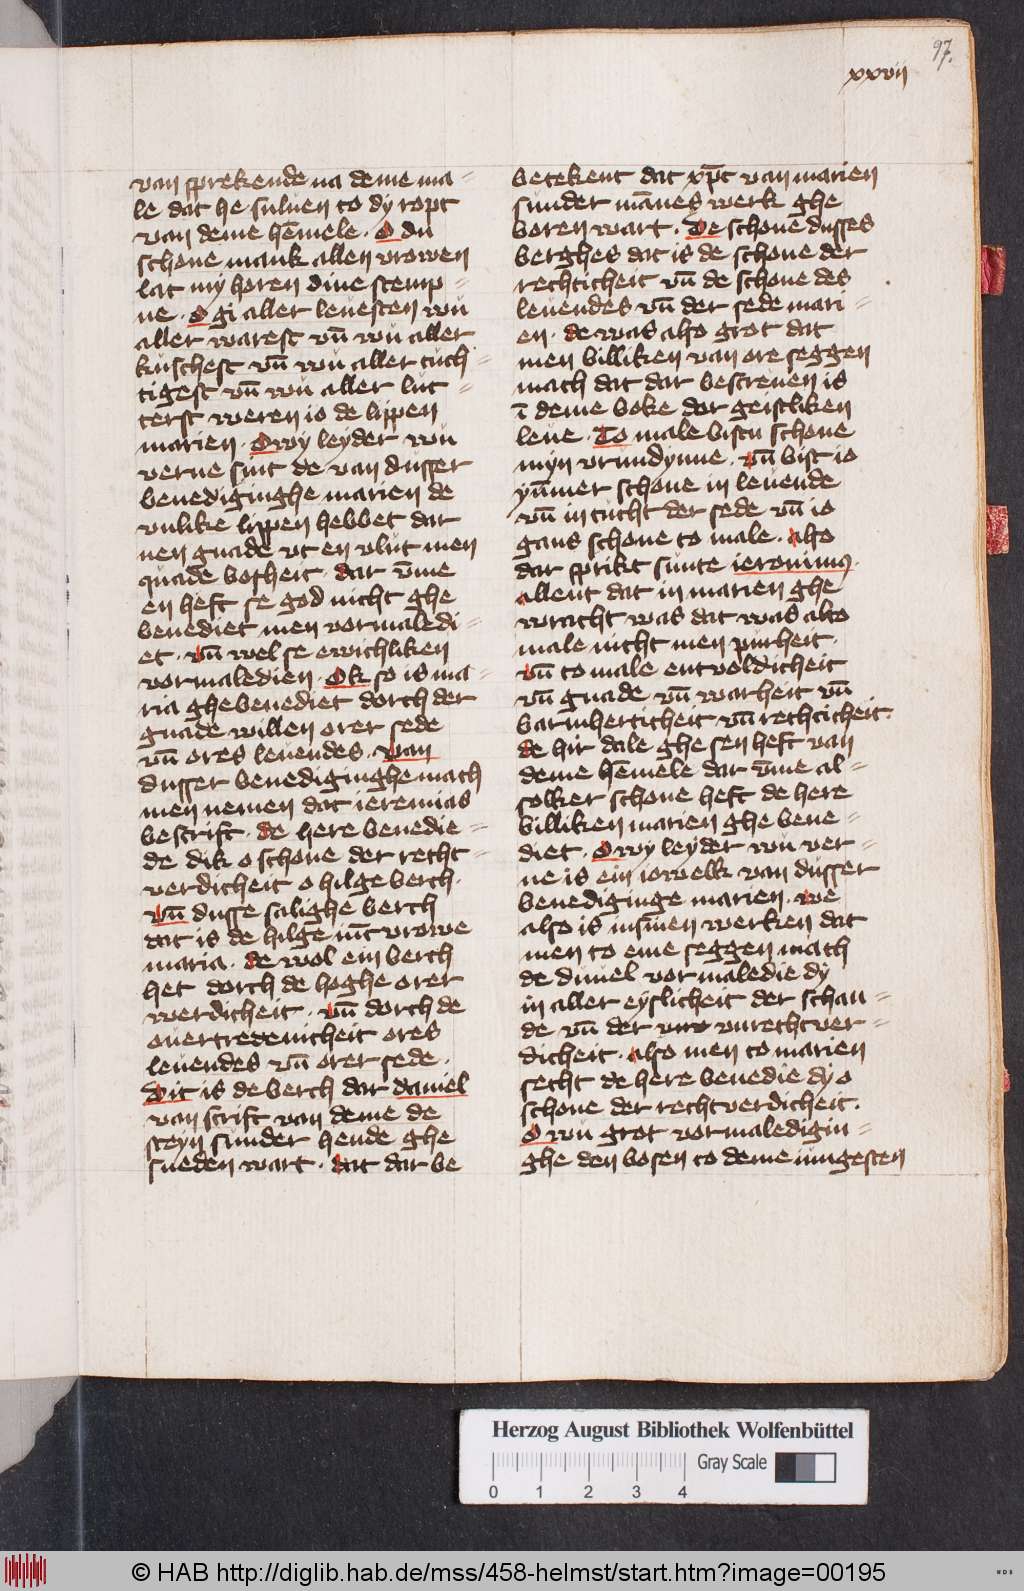 97.
xxvii
van sprekende na deme ma-
le dat he suluen to dy ropt
van deme hēmele. O du
schone mank allen vrowen
lat my horen dine stemp-
ne. O gi aller leuesten wu
aller warest vn̄ wu aller
kuschest vn̄ wu aller tuch-
tigest vn̄ wu aller lut-
terst weren io de lippen
marien. Owy leyder wu
verne sint de van dusser
benediginghe marien de
vnlike lippen hebbet dar
nen gnade vt en vlut men
quade bosheit. dar v̄me
en heft se god nicht ghe
benediet men vormaledi-
et. vn̄ wel se ewichliken
vormaledien. Ok so is ma-
ria ghebenediet dorch der
gnade willen orer sede
vn̄ ores leuendes. van
dusser benediginghe mach
men nemen dat ieremias
bescrift. de here benedie-
de dik o schone der recht-
verdicheit o hilge berch.
vn̄ dusse salighe berch
dat is de hilge iūc vrowe
maria. de wol ein berch
het dorch de hoghe orer
werdicheit. vn̄ dorch de
ouertredenicheit ores
leuendes vn̄ orer sede.
Dit is de berch dar daniel
van scrift van deme de
steyn sunder hende ghe
sneden wart. dat dar be
betekent dat xp̄c van marien
sunder mānes werk ghe
boren wart. De schonē dusses
berghes dat is de schone der
rechticheit vn̄ de schone des
leuendes vn̄ der sede mari-
en. de was also grot dat
men billiken van ore seggen
mach dat dar bescreuen is
ī deme boke dor geistliken
leue. To male bistu schone
myn vrundynne. vn̄ bist io
yūmer schone in leuende
vn̄ in tucht der sede vn̄ io
gans schone to male. also
dar sprikt sunte ieronimus.
allent dat in marien ghe
wracht was dat was alto
male nicht men purheit.
vn̄ to male entvoldicheit
vn̄ gnade vn̄ warheit vn̄
barmherticheit vn̄ rechticheit.
de hir dale ghe sen heft van
deme hēmele dar v̄me al-
solker schone heft de here
billiken marien ghe bene-
diet. Owy leyder wu ver-
ne is ein iowelk van dusser
benediginge marien. we
also is in sinen werken dat
men to eme seggen mach
de duuel vormaledie dy
in aller eyslicheit der schan-
de vn̄ der vnrechtver-
dicheit. also men to marien
secht de here benedie dy o
schone der rechtverdicheit.
O wu grot vormaledigin-
ghe den bosen to deme iungesten
Herzog August Bibliothek Wolfenbüttel
Gray Scale
0 1 2 3 4
© HAB http://diglib.hab.de/mss/458-helmst/start.htm?image=00195